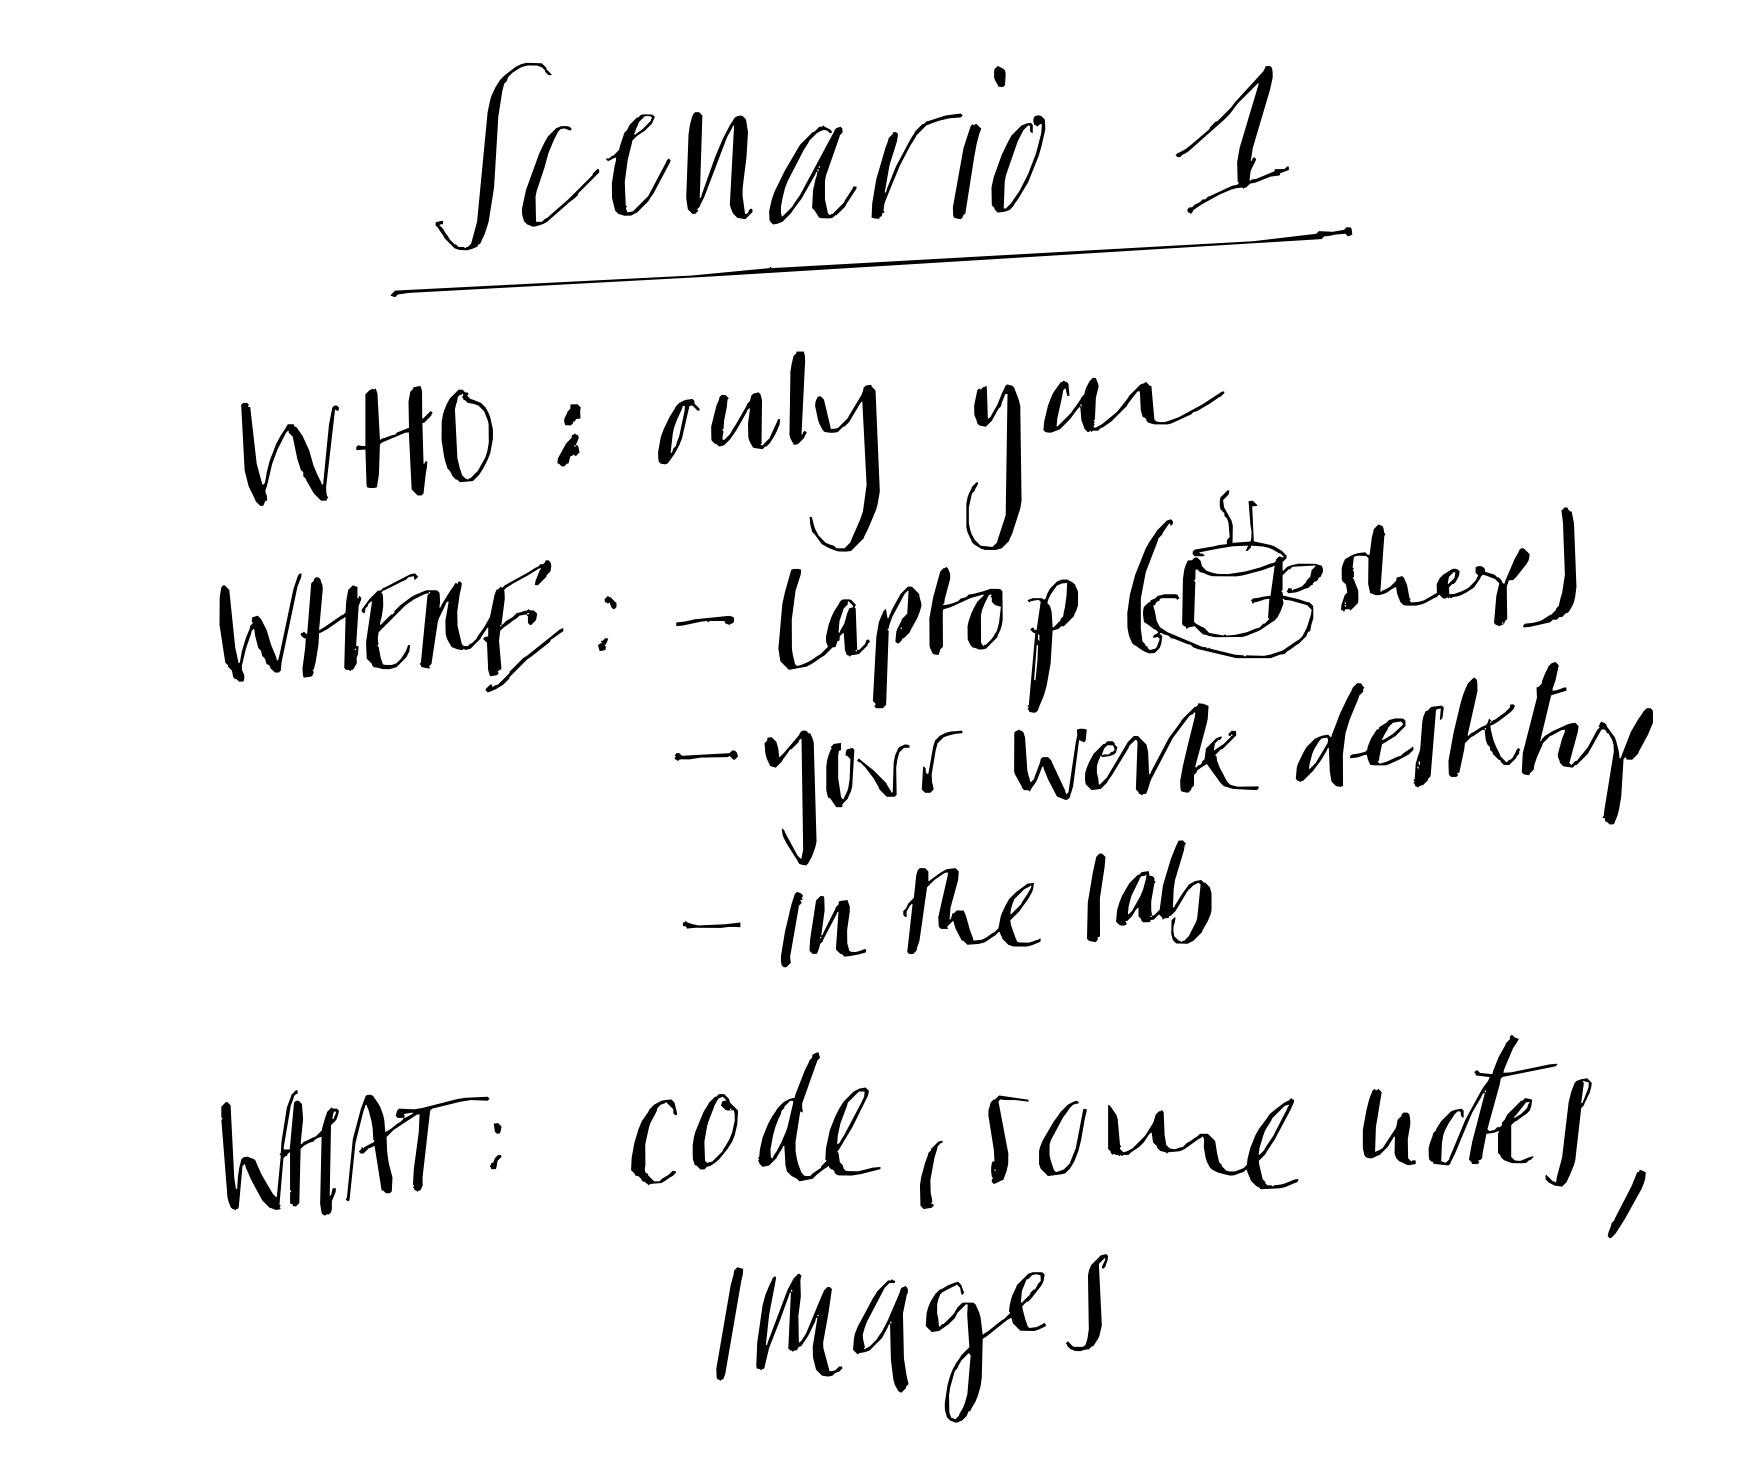 Scenario 1
WHO : only you
WHERE : - laptop ( shop)
- your work desktop
- in the lab
WHAT : code, some notes,
images